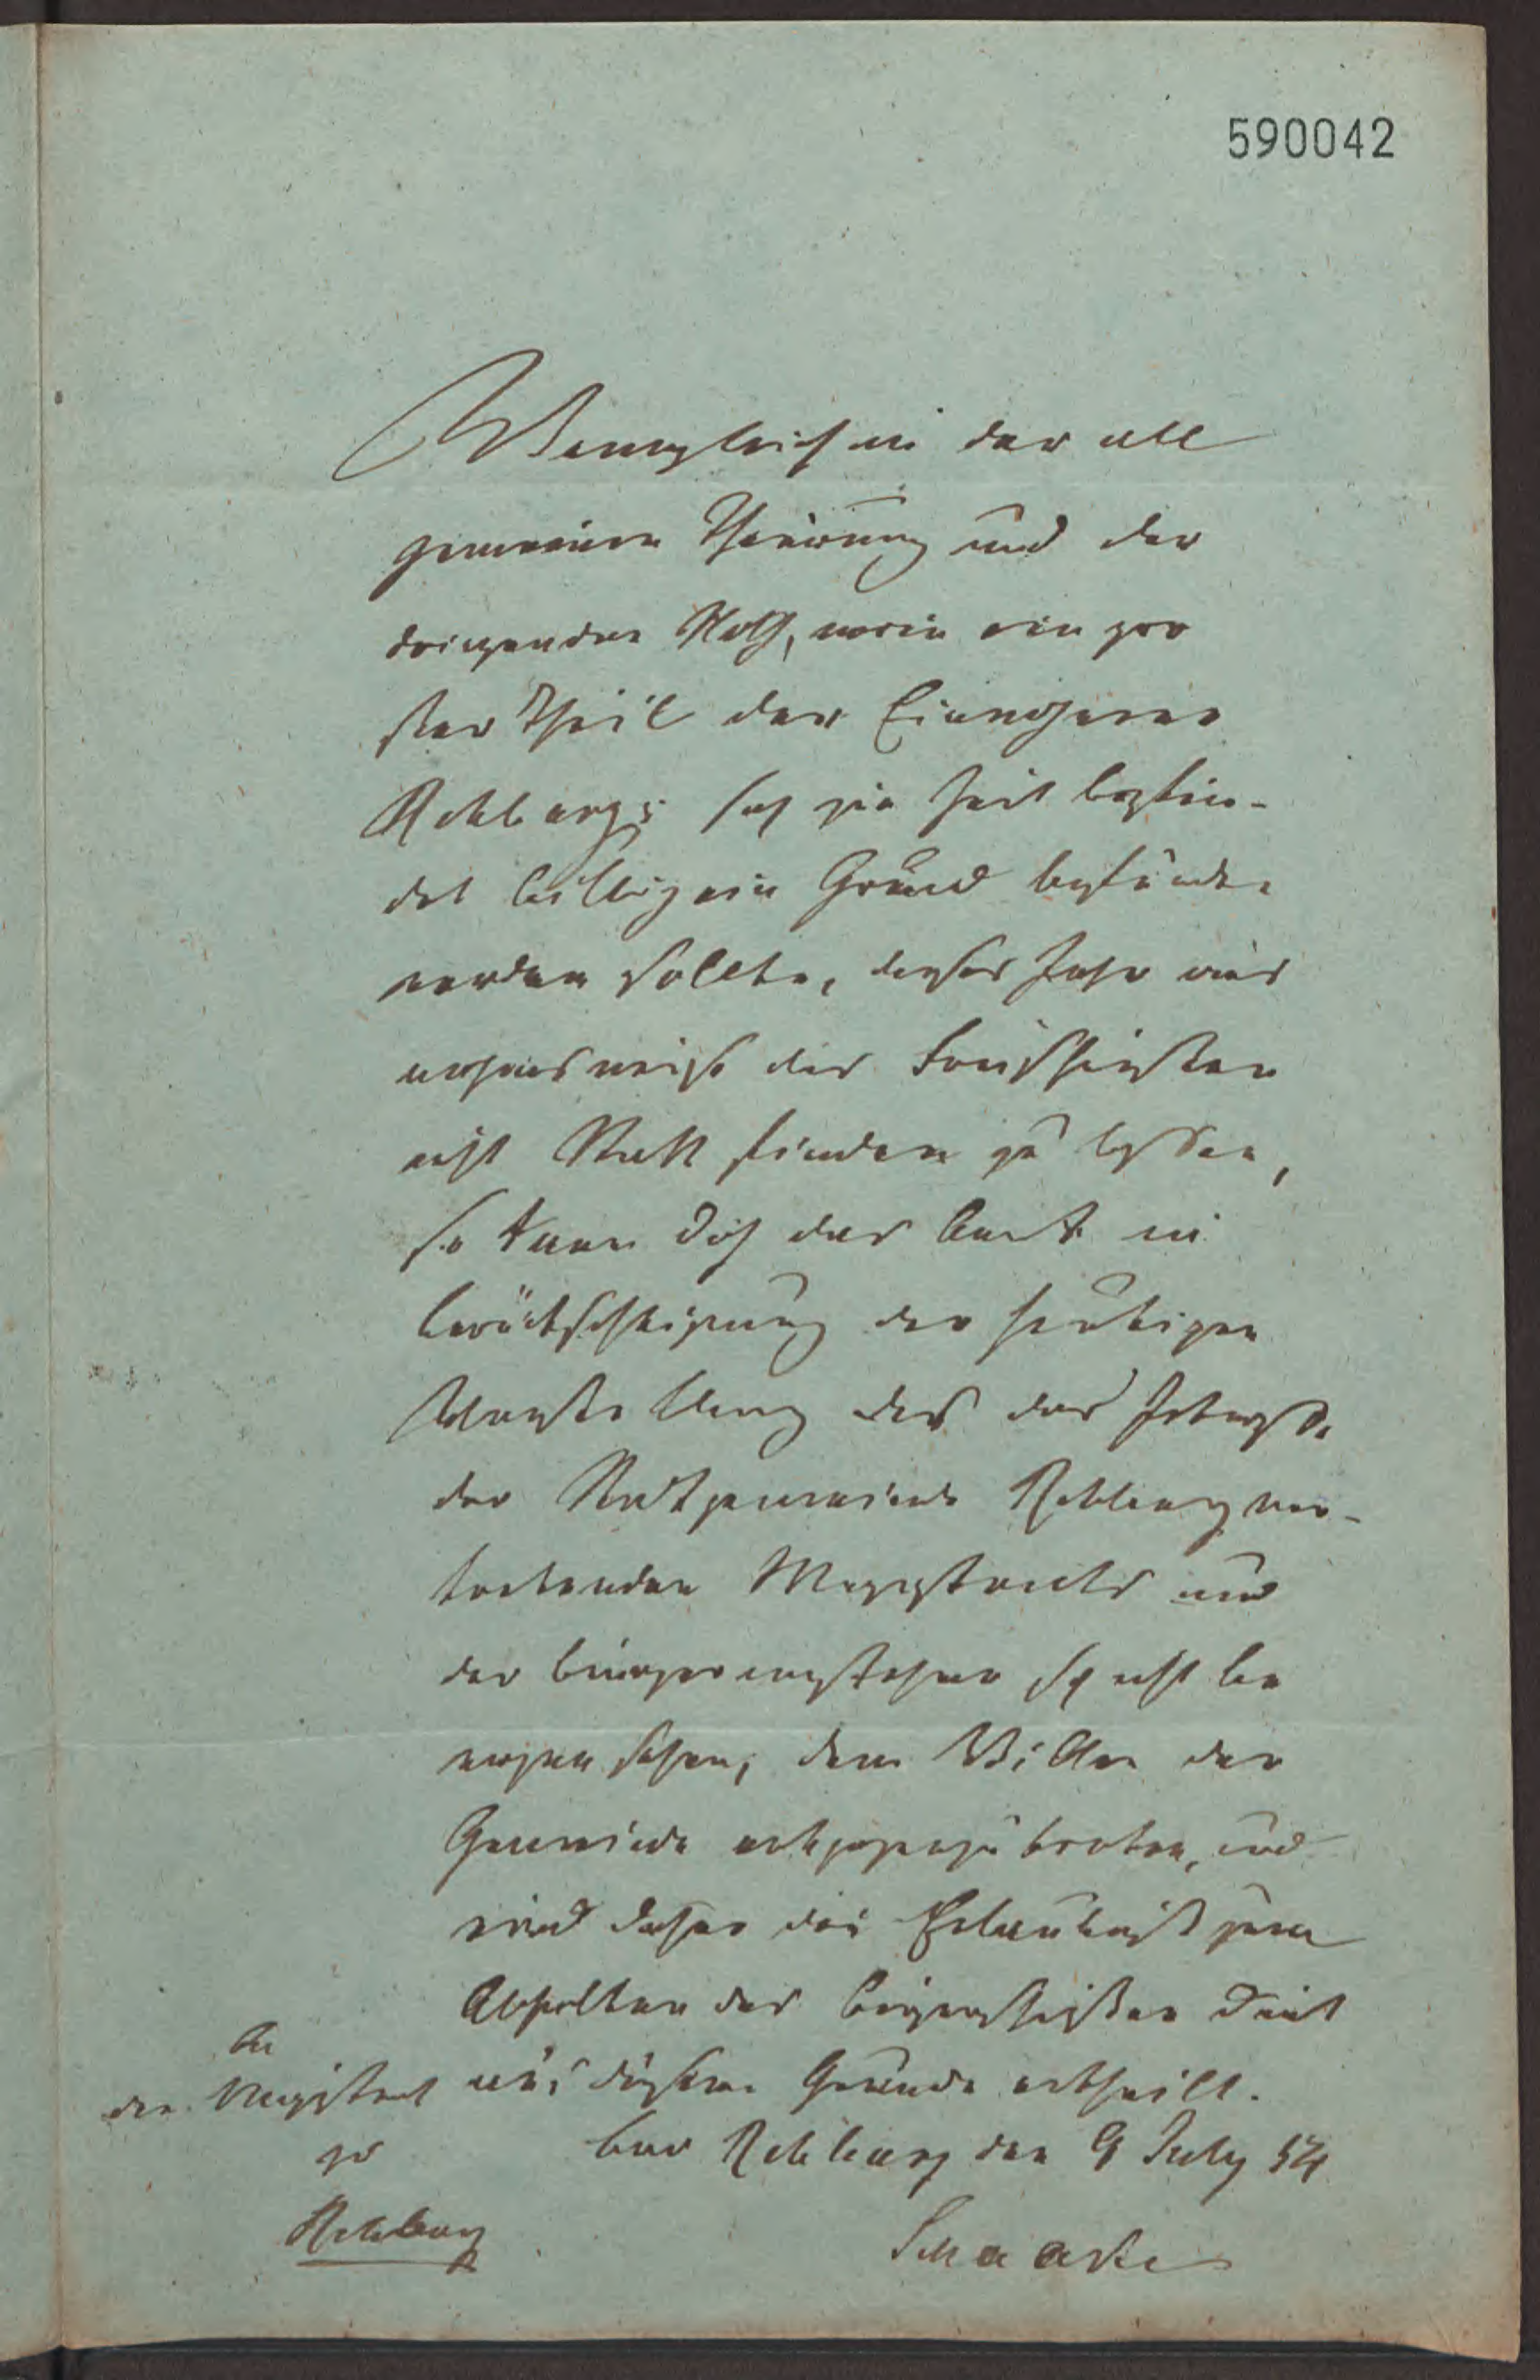 590042
Wenngleich in der all
gemeinen Theurung und der
dringenden Noth, worin ein gro
ßer Theil der Einwohner
Rehburgs sich zur Zeit befin-
det billig ein Grund befunden
werden sollte, dieses Jahr aus
nahmsweise das Freischießen
nicht Statt finden zu lassen,
so kann doch das Amt in
Berücksichtigung der heutigen
Vorstellung des das Interesse
der Stadtgemeinde Rehburg ver-
tretenden Magistrats und
der Bürgervorsteher sich nicht be
wogen sehen, dem Willen der
Gemeinde entgegenzutreten, und
wird daher die Erlaubniß zum
Abhalten des Bürgerschießens Seit
aus diesem Grunde ertheilt.
Amt Rehburg den 9 July 54
An
den Magistrat
zu
Rehburg